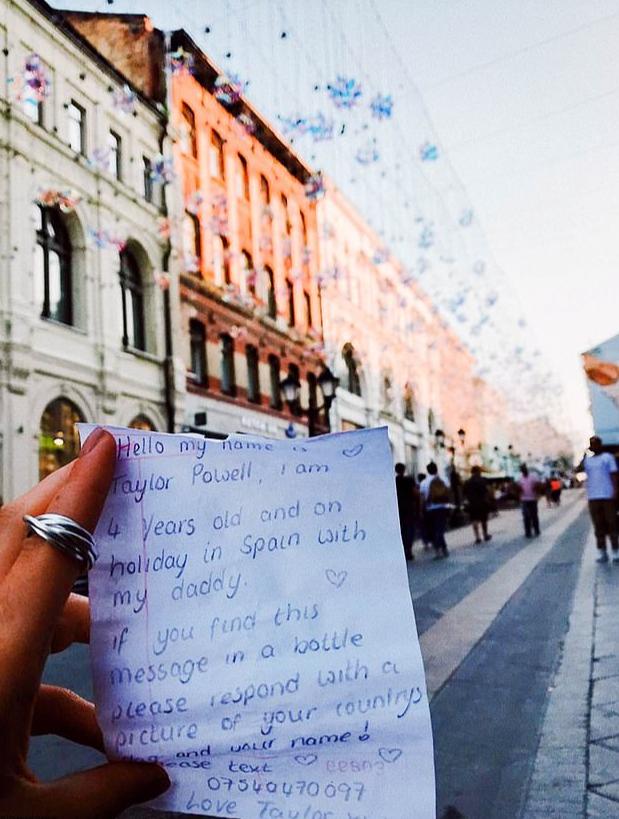 Hello my name is
Taylor Powell, i am
4 Years old and on
holiday in Spain with
my daddy.
if you find this
message in a bottle
please respond with a
picture of your countrys
and your name!
please text
07540470097
Love Taylor